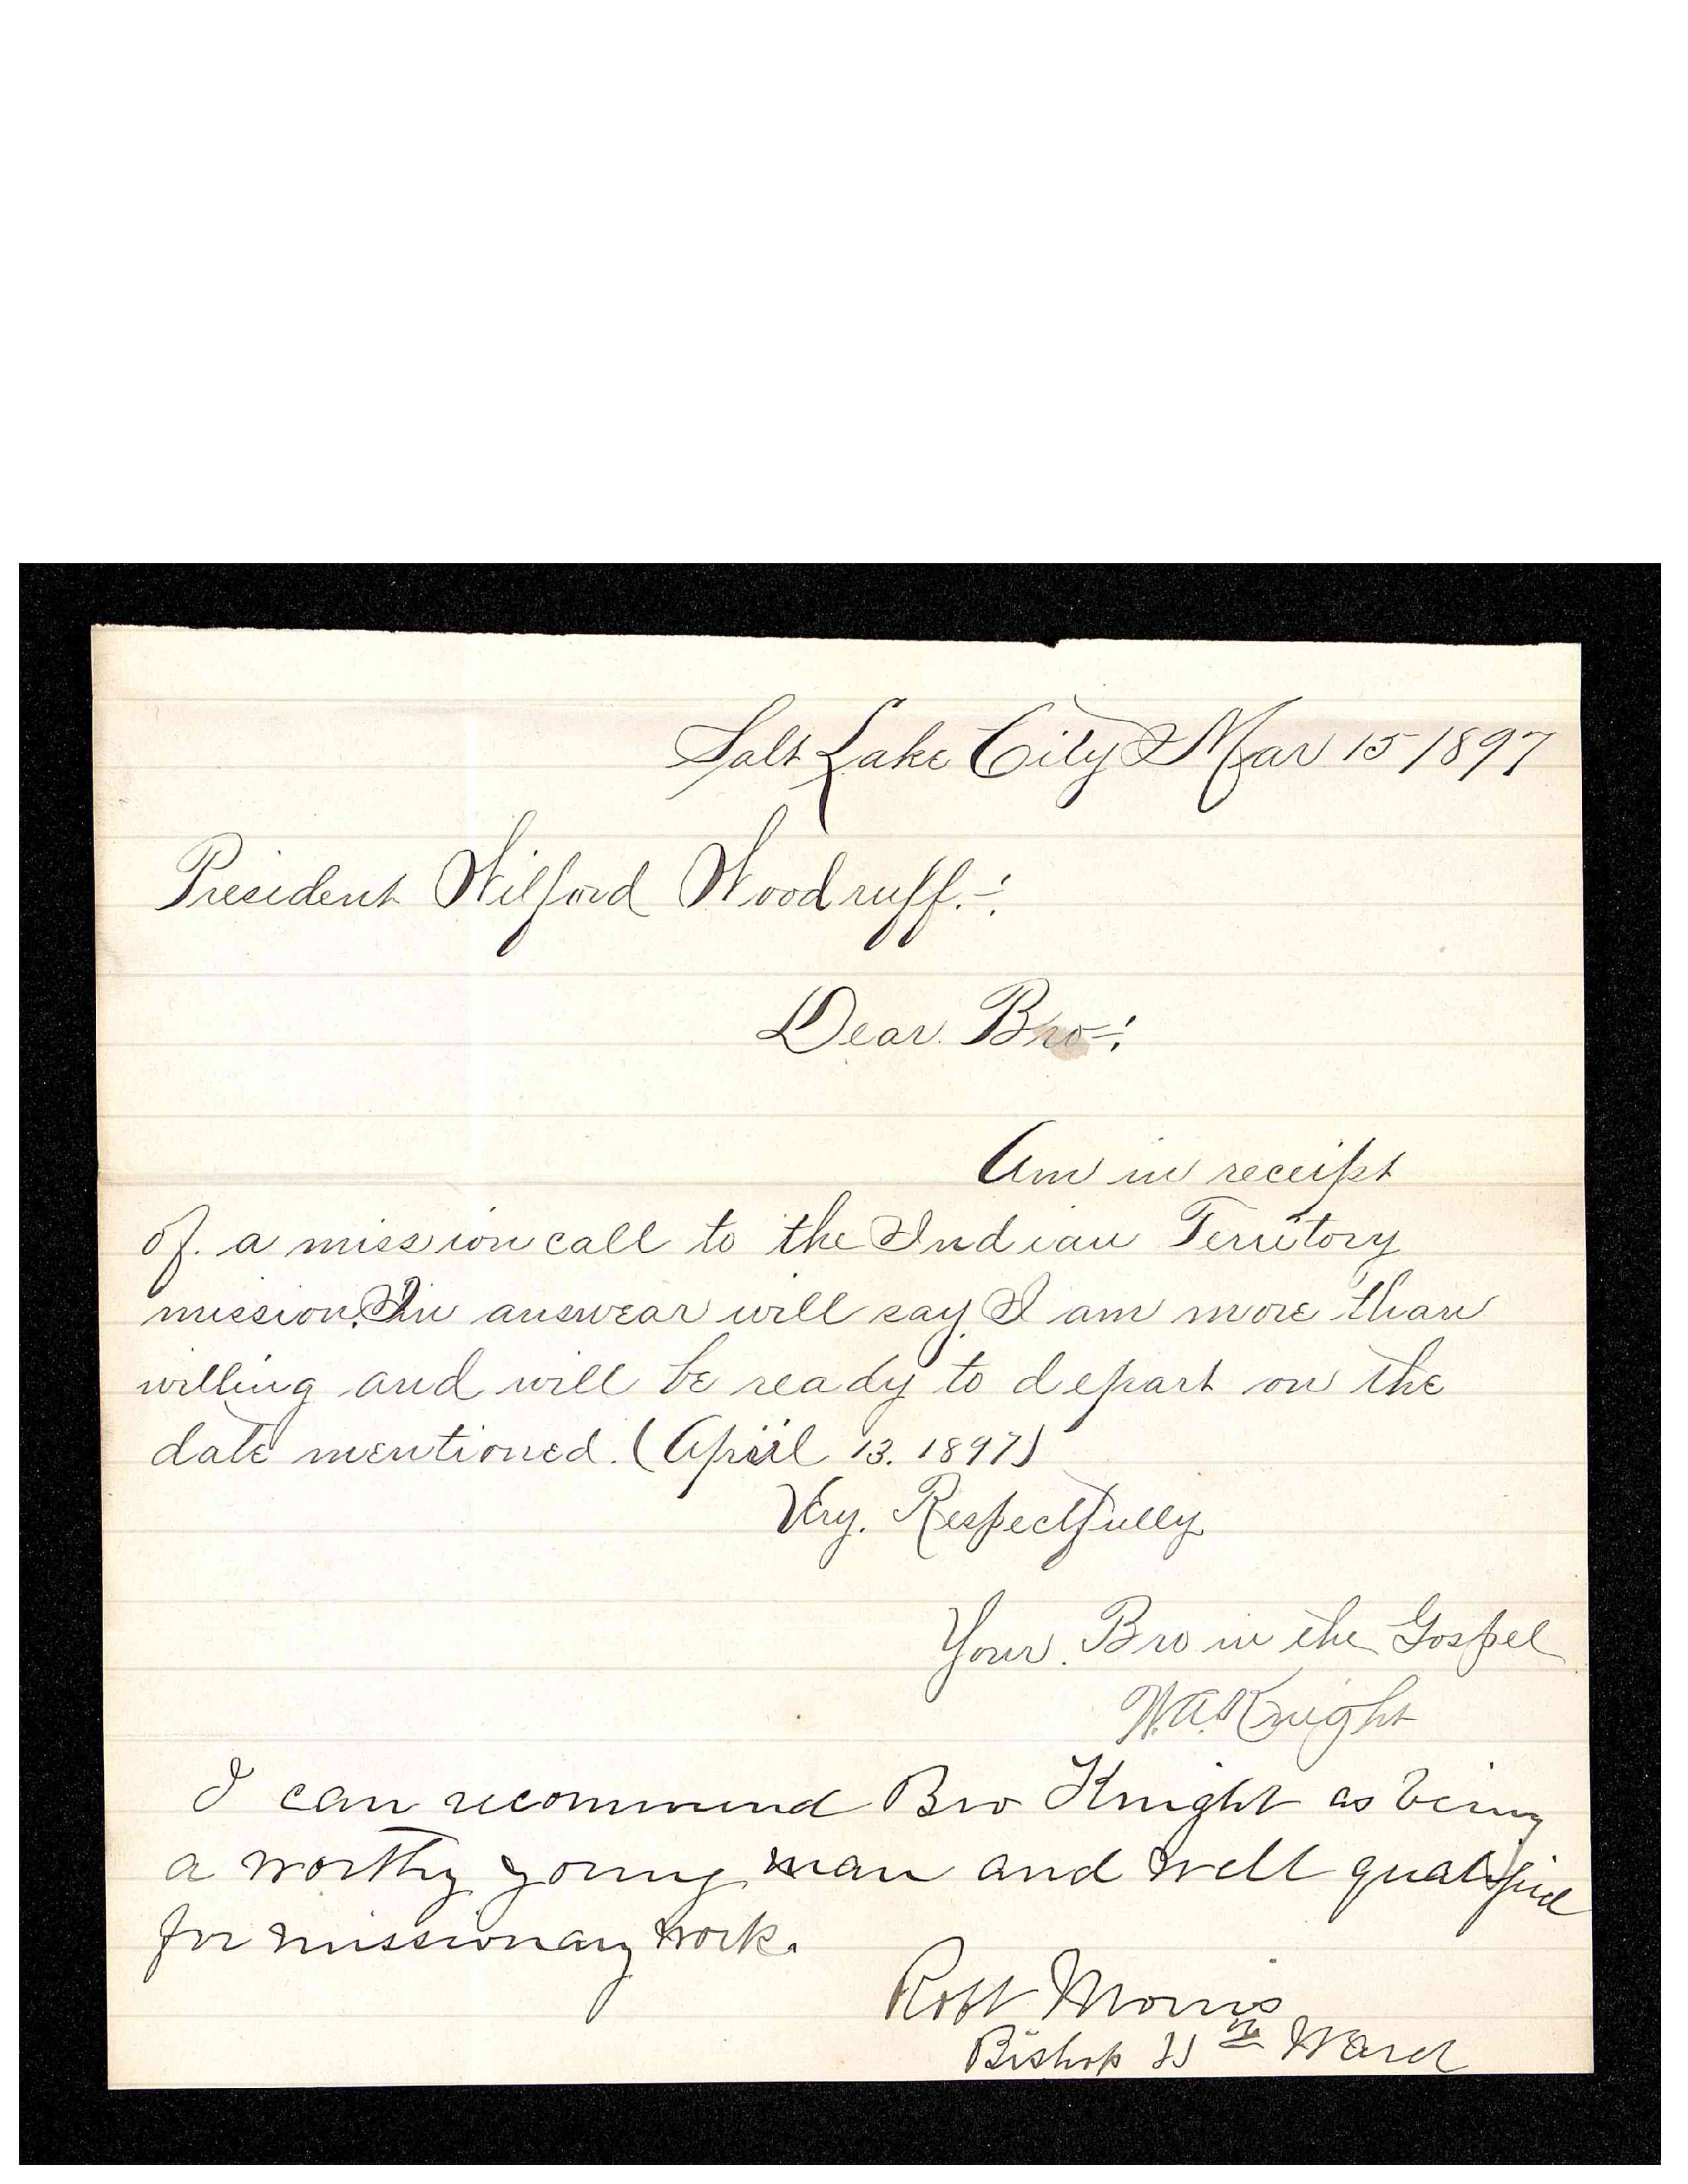 Salt Lake City Mar 15 1897
President Wilford Woodruff.-:
Dear Bro-:
Am in receipt
of. a mission call to the Indian Territory
mission. In answear will say I am more than
willing and will be ready to depart on the
date mentioned. (April 13. 1897)
Very. Respectfully
Your. Bro in the Gospel
W.A. Knight
I can recommend Bro Knight as being
a worthy young man and well qualified
for missionary work.
Robt Morris
Bishop 11th Ward